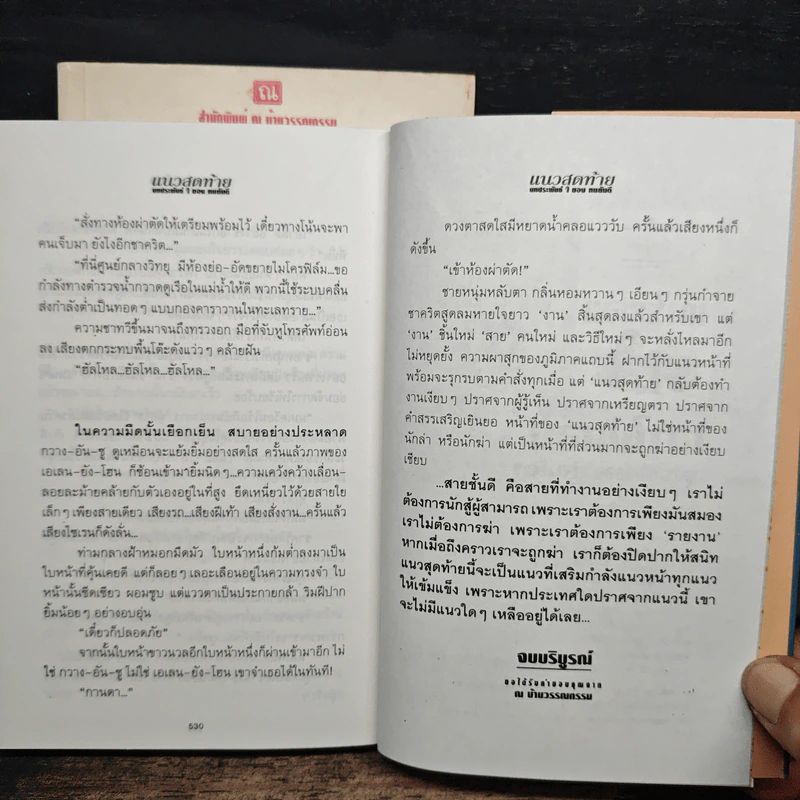 ณ
สำนักพิมพ์ ณ บ้านวรรณกรรม
แนวสุดท้าย
บทประพันธ์ ว ของ ทมยันตี
“สั่งทางห้องผ่าตัดให้เตรียมพร้อมไว้ เดี๋ยวทางโน้นจะพา
คนเจ็บมา ยังไงอีกชาคริต...”
“ที่นี่ศูนย์กลางวิทยุ มีห้องย่อ-อัดขยายไมโครฟิล์ม...ขอ
กำลังทางตำรวจน้ำกวาดดูเรือในแม่น้ำให้ดี พวกนี้ใช้ระบบคลื่น
ส่งกำลังต่ำเป็นทอดๆ แบบกองคาราวานในทะเลทราย...”
ความชาทวีขึ้นมาจนถึงทรวงอก มือที่จับหูโทรศัพท์อ่อน
ลง เสียงตกกระทบพื้นโต๊ะดังแว่วๆ คล้ายฝัน
“ฮัลโหล...ฮัลโหล...ฮัลโหล...”
ในความมืดนั้นเยือกเย็น สบายอย่างประหลาด
กวาง-อัน-ซู ดูเหมือนจะแย้มยิ้มอย่างสดใส ครั้นแล้วภาพของ
เอเลน-ยัง-โฮน ก็ซ้อนเข้ามายิ้มนิดๆ...ความเคว้งคว้างเลื่อน-
ลอยละม้ายคล้ายกับตัวเองอยู่ในที่สูง ยึดเหนี่ยวไว้ด้วยสายใย
เล็กๆ เพียงสายเดียว เสียงรถ...เสียงฝีเท้า เสียงสั่งงาน...ครั้นแล้ว
เสียงไซเรนก็ดังลั่น...
ท่ามกลางฝ้าหมอกมืดมัว ใบหน้าหนึ่งก้มต่ำลงมาเป็น
ใบหน้าที่คุ้นเคยดี แต่ก็ลอยๆ เลอะเลือนอยู่ในความทรงจำ ใบ
หน้านั้นซีดเซียว ผอมซูบ แต่แววตาเป็นประกายกล้า ริมฝีปาก
ยิ้มน้อยๆ อย่างอบอุ่น
“เดี๋ยวก็ปลอดภัย”
จากนั้นใบหน้าขาวนวลอีกใบหน้าหนึ่งก็ผ่านเข้ามาอีก ไม่
ใช่ กวาง-อัน-ซู ไม่ใช่ เอเลน-ยัง-โฮน เขาจำเธอได้ในทันที!
“กานดา...”
530
แนวสุดท้าย
บทประพันธ์ ว ของ ทมยันตี
ดวงตาสดใสมีหยาดน้ำคลอแวววับ ครั้นแล้วเสียงหนึ่งก็
ดังขึ้น
“เข้าห้องผ่าตัด!”
ชายหนุ่มหลับตา กลิ่นหอมหวานๆ เอียนๆ กรุ่นกำจาย
ชาคริตสูดลมหายใจยาว ‘งาน’ สิ้นสุดลงแล้วสำหรับเขา แต่
‘งาน’ ชิ้นใหม่ ‘สาย’ คนใหม่ และวิธีใหม่ๆ จะหลั่งไหลมาอีก
ไม่หยุดยั้ง ความผาสุกของภูมิภาคแถบนี้ ฝากไว้กับแนวหน้าที่
พร้อมจะรุกรบตามคำสั่งทุกเมื่อ แต่ ‘แนวสุดท้าย’ กลับต้องทำ
งานเงียบๆ ปราศจากผู้รู้เห็น ปราศจากเหรียญตรา ปราศจาก
คำสรรเสริญเยินยอ หน้าที่ของ ‘แนวสุดท้าย’ ไม่ใช่หน้าที่ของ
นักล่า หรือนักฆ่า แต่เป็นหน้าที่ที่ส่วนมากจะถูกฆ่าอย่างเงียบ
เชียบ
...สายชั้นดี คือสายที่ทำงานอย่างเงียบๆ เราไม่
ต้องการนักสู้ผู้สามารถ เพราะเราต้องการเพียงมันสมอง
เราไม่ต้องการฆ่า เพราะเราต้องการเพียง ‘รายงาน’
หากเมื่อถึงคราวเราจะถูกฆ่า เราก็ต้องปิดปากให้สนิท
แนวสุดท้ายนี้จะเป็นแนวที่เสริมกำลังแนวหน้าทุกแนว
ให้เข้มแข็ง เพราะหากประเทศใดปราศจากแนวนี้ เขา
จะไม่มีแนวใดๆ เหลืออยู่ได้เลย...
จบบริบูรณ์
ขอได้รับคำขอบคุณจาก
ณ บ้านวรรณกรรม